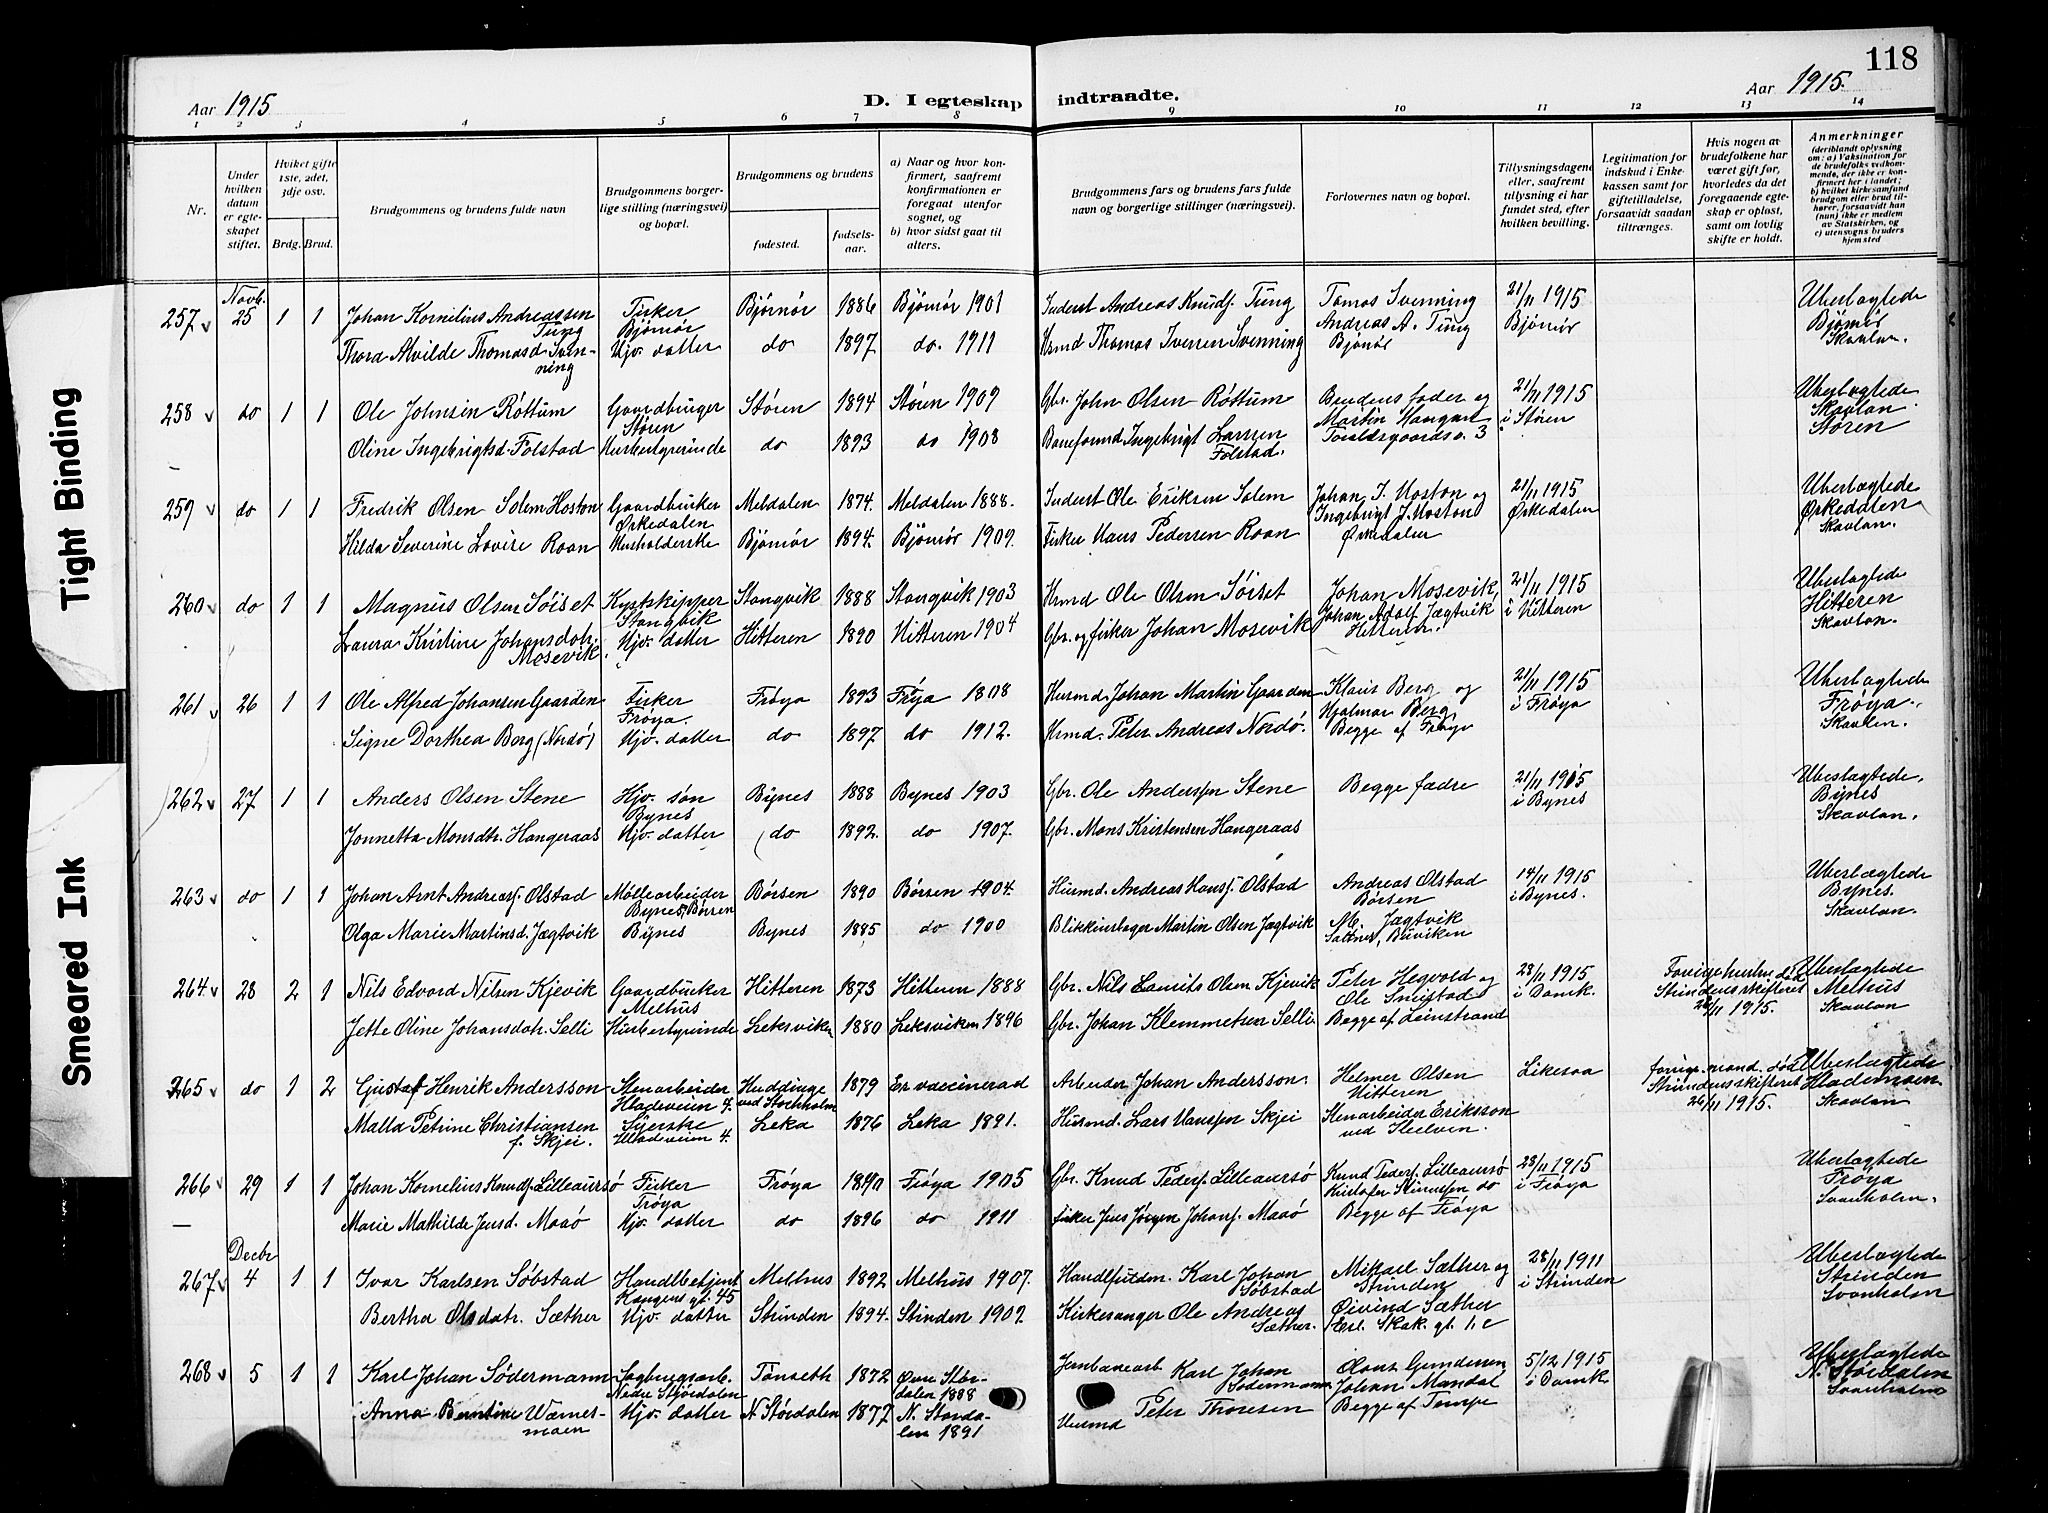 118
Aar 1915
D. I egteskap indtraadte.
Aar 1915.
1 2 3 4 5 6 7 8 9 10 11 12 13 14
Nr.
Under hvilken datum er egteskapet stiftet.
Hviket gifte 1ste, 2det, 3dje osv.
Brdg. Brud.
Brudgommens og brudens fulde navn
Brudgommens borgerlige stilling (næringsvei) og bopæl.
Brudgommens og brudens
fødested.
fødselsaar.
a) Naar og hvor konfirmert, saafremt konfirmationen er foregaat utenfor sognet, og
b) hvor sidst gaat til alters.
Brudgommens fars og brudens fars fulde navn og borgerlige stillinger (næringsvei).
Forlovernes navn og bopæl.
Tillysningsdagene eller, saafremt tillysning ei har fundet sted, efter hvilken bevilling.
Legitimation for indskud i Enkekassen samt for giftetilladelse, forsaavidt saadan tiltrænges.
Hvis nogen av brudefolkene har været gift før, hvorledes da det foregaaende egteskap er opløst, samt om lovlig skifte er holdt.
Anmerkninger (deriblandt oplysning om: a) Vaksination for de brudefolks vedkommende, der ikke er konfirmert her i landet; b) hvilket kirkesamfund brudgom eller brud tilhører, forsaavidt han (hun) ikke er medlem av Statskirken, og c) utensogns bruders hjemsted
Novb.
257 25 1 1 Johan Kornelius Andreassen Tung Fisker Bjørnør Bjørnør 1886 Bjørnør 1901 Inderst Andreas Knuds. Tung Tomas Svenning Andreas A. Tung Bjørnør 21/11 1915 Bjørnør Ubeslægtede Bjørnør Skavlan.
Thora Alvilde Thomasd. Svenning Hjv. datter do 1897 do. 1911 Hrmd Thomas Iversen Svenning
258 do 1 1 Ole Johnsen Røttum Gaardbruger Støren Støren 1894 Støren 1909 Gbr. John Olsen Røttum Brudens fader og Martin Haugan Toraldsgaardsv. 3 21/11 1915 i Støren Ubeslægtede Skavlan Støren
Oline Ingebrigtsd. Folstad Husbestyrerinde do 1893 do 1908 Baneformand Ingebrigt Larsen Folstad.
259 do 1 1 Fredrik Olsen Solem Hoston Gaardbruker Ørkedalen Meldalen 1874. Meldalen 1888. Inderst Ole Eriksen Solem Johan I. Hoston og Ingebrigt J. Hoston Ørkedalen 21/11 1915 Ørkedalen Ubeslægtede Ørkedalen Skavlan.
Hilda Severine Lovise Roan Husholderske Bjørnør 1894. Bjørnør 1909. Fisker Hans Pedersen Roan
260 do 1 1 Magnus Olsen Søiset Kystskipper Stangvik Stangvik 1888 Stangvik 1903 Hrmd Ole Olsen Søiset Johan Mosevik, Johan Adolf Jægtvik Hitteren. 21/11 1915 i Hitteren Ubeslægtede Hitteren Skavlan.
Laura Kristine Johansdatr. Mosevik Hjv. datter Hitteren 1890 Hitteren 1904 Gbr. og fisker Johan Mosevik
261 26 1 1 Ole Alfred Johansen Gaarden Fisker Frøya. Frøya 1893 Frøya 1808 Husmd. Johan Martin Gaarden Klaus Berg og Hjalmar Berg Begge af Frøya 21/11 1915 i Frøya Ubeslægtede Frøya. Skavlan.
Signe Dorthea Berg (Nordø) Hjv. datter do 1897 do 1912. Hrmd. Peter Andreas Nordø.
262 27 1 1 Anders Olsen Stene Hjv. søn Bynes Bynes 1888 Bynes 1903 Gbr. Ole Anderssen Stene Begge fædre 21/11 1915 i Bynes Ubeslagtede. Bynes Skavlan.
Jonnetta Monsdtr. Hangeraas Hjv. datter do 1892. do 1907. Gbr. Mons Kristensen Hangeraas
263 do 1 1 Johan Arnt Andreas. Olstad Møllearbeider Bynes, Børsen Børsen 1890 Børsen 1904. Husmd. Andreas Hans. Olstad Andreas Olstad Børsen 14/11 1915 i Bynes. Ubeslægtede Bynes. Skavlan.
Olga Marie Martinsd. Jægtvik Bynes Bynes 1885 do 1900 Blikkenslager Martin Olsen Jægtvik M. Jagtvik Saltnes, Buviken
264 28 2 1 Nils Edvard Nilsen Kjevik Gaardbruker Melhus Hitteren 1873 Hitteren 1888 Gbr. Nils Laurits Olsen Kjevik Peter Hegvold og Ole Smistad Begge af Leinstrand 28/11 1915 i Domk. Forrige hustru død Strindens skifteret 26/11 1915. Ubeslagtede Melhus Skavlan
Jette Oline Johansdatr. Selli Husbestyrerinde Leksviken 1880 Leksviken 1896 Gbr. Johan Klemmetsen Selli
265 do 1 2 Gustaf Henrik Andersson Stenarbeider Hladeveien 4. Huddinge ved Stockholm 1879 Er vaccinerad Arbeider Johan Andersson. Helmer Olsen Hitteren Likesaa forrige mand død Strindens skifteret 26/11 1915. Ubeslægtede Hlademoen. Skavlan
Malla Petrine Christiansen f. Skjei. Syerske Hladeveien 4. Leka 1876 Leka 1891. Husmd. Lars Hanssen Skjei Stenarbeider Eriksson ved Steelven.
266 29 1 1 Johan Kornelius Knuds. Lilleaursø Fisker Frøya Frøya 1890 Frøya 1905 Gbr. Knud Peders. Lilleaursø Knud Peders. Lilleaursø Begge af Frøya 28/11 1915 i Frøya Ubeslægtede Frøya Svanholm.
Marie Mathilde Jensd. Maaø Hjv. datter do 1896 do 1911 fisker Jens Jørgen Johans. Maaø
Decbr
267 4 1 1 Ivar Karlsen Søbstad Handlbetjent Kongens gt. 45 Melhus 1892 Melhus 1907. Handlsfuldm. Karl Johan Søbstad Mikael Sæther og Strinden 28/11 1911 i Strinden Ubeslægtede Strinden Svanholm
Bertha Olsdatr. Sæther Hjv. datter Strinden 1894. Strinden 1909. Kirkesanger Ole Andreas Sæther. Øivind Sæther Erl. Skak. gt. 1. c
268 5 1 1 Karl Johan Södermann Sagbrugsarb. Nedre Stjørdalen Tønseth 1872 Øvre Stördalen 1888 Jernbanearb Karl Johan Södermann Olaus Gundersen Johan Mandal Begge af Tempe 5/12 1915 i Domk. Ubeslægtede N. Størdalen Svanholm
Anna Berntine Wærnesmoen Hjv. datter N Størdalen 1877 N. Stördalen 1891 Husmd Peter Thoresen
Tight Binding
Smeared Ink